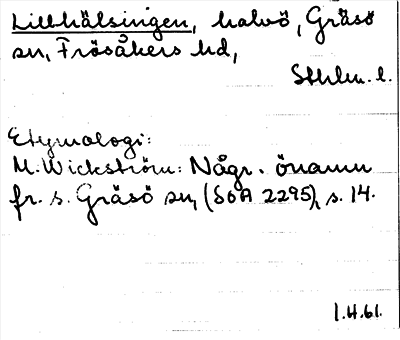 Lillhälsingen, halvö, Gräsö
sn, Frösåkers hd,
Sthlm. l.
Etymologi:
M. Wickström: Någr. önamn
fr. s. Gräsö sn, (SOA 2295), s. 14.
1.4.61.